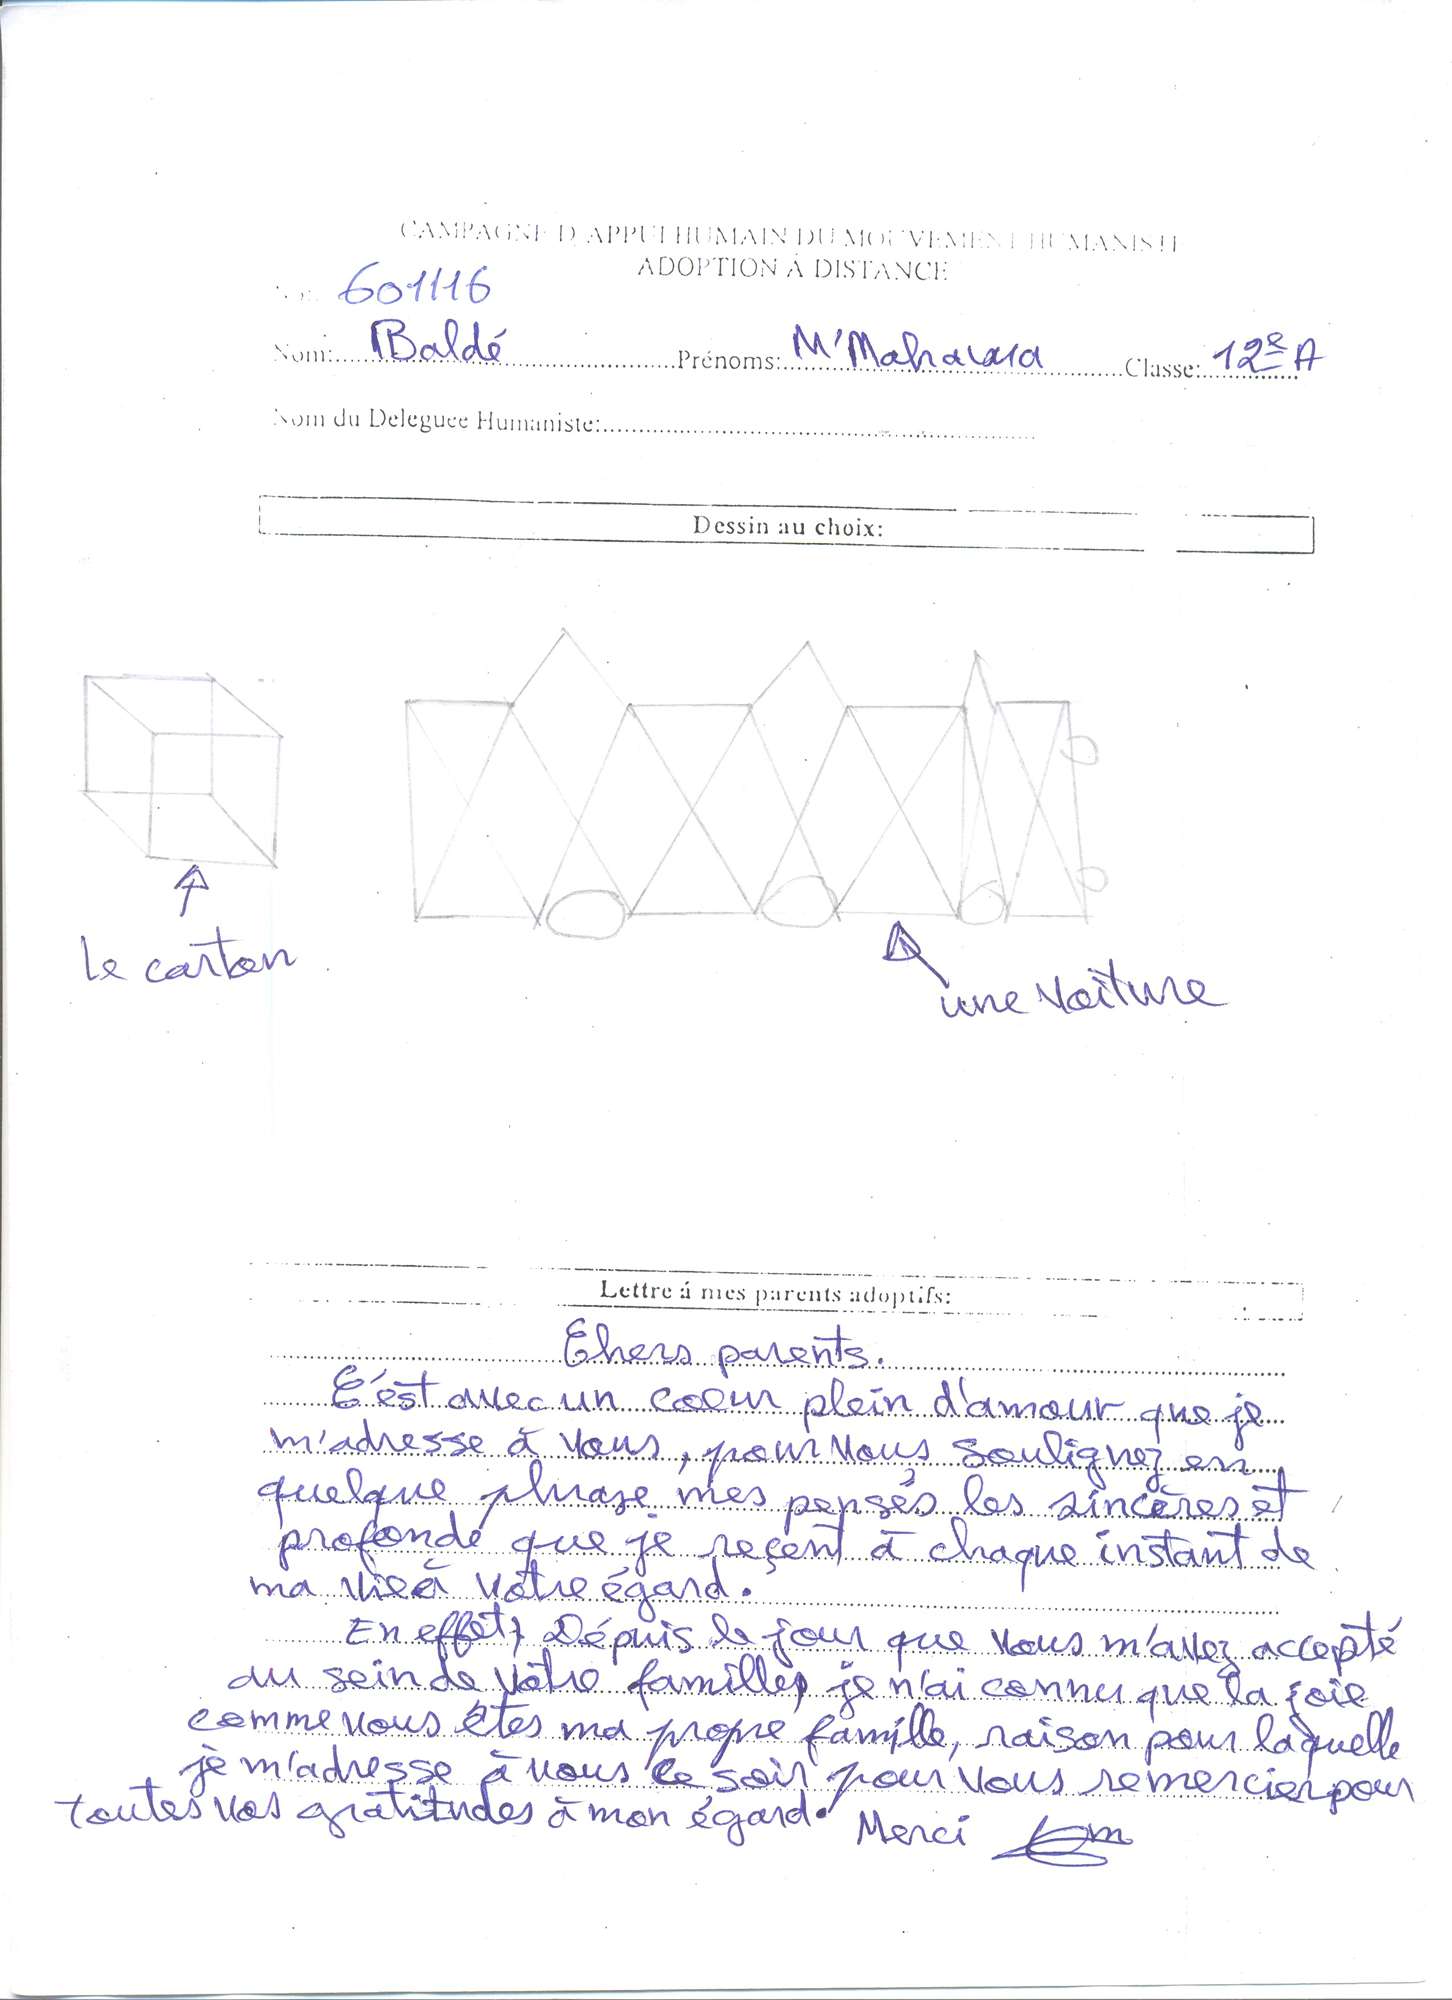 CAMPAGNE D'APPUI HUMAIN DU MOUVEMENT HUMANISTE
ADOPTION Á DISTANCE
No: 601116
Nom: Baldé Prénoms: M'Mahawa Classe: 12e A
Nom du Deleguee Humaniste:
Dessin au choix:
le carton
une voiture
Lettre á mes parents adoptifs:
Chers parents.
C'ést avec un coeur plein d'amour que je
m'adresse à vous, pour vous soulignez en
quelque phrase mes pensés les sincères et
profonde que je reçent à chaque instant de
ma vie à vôtre égard.
En effet, Dépuis le jour que vous m'avez accepté
au sein de vôtre famille, je n'ai connu que la joie
comme vous êtes ma propre famille, raison pour laquelle
je m'adresse à vous ce soir pour vous remercier pour
toutes vos gratitudes à mon égard. Merci